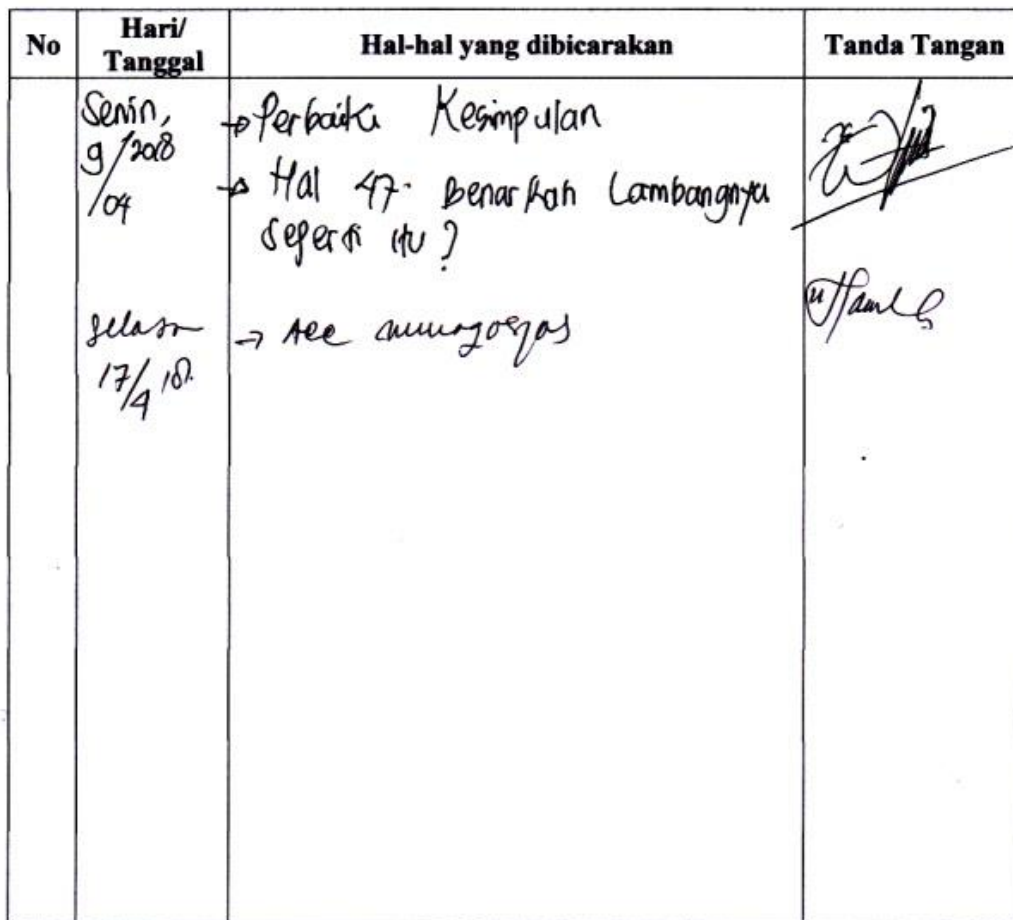 No Hari/ Tanggal Hal-hal yang dibicarakan Tanda Tangan
Senin, → Perbaiki Kesimpulan
9/2018
/04 → Hal 47. Benarkah Lambangnya
seperti itu?
Selasa → Acc munaqosyas
17/4 18.